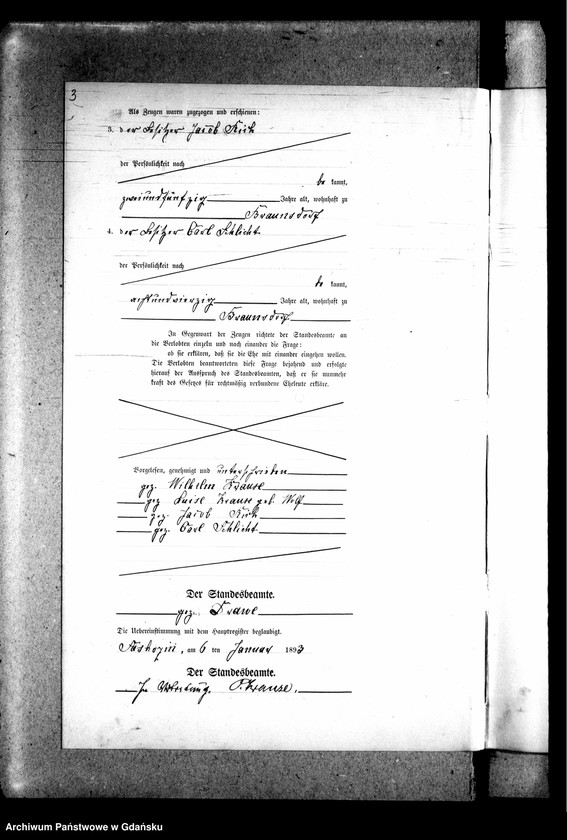 3
Als Zeugen waren zugezogen und erschienen:
3. der Besitzer Jacob
der Persönlichkeit nach
be kannt,
zweiundfünfzig Jahre alt, wohnhaft zu
Braunsdorf
4. der Besitzer Carl Schlicht
der Persönlichkeit nach
be kannt,
achtundvierzig Jahre alt, wohnhaft zu
Braunsdorf
In Gegenwart der Zeugen richtete der Standesbeamte an
die Verlobten einzeln und nach einander die Frage:
ob sie erklären, daß sie die Ehe mit einander eingehen wollen.
Die Verlobten beantworteten diese Frage bejahend und erfolgte
hierauf der Ausspruch des Standesbeamten, daß er sie nunmehr
kraft des Gesetzes für rechtmäßig verbundene Eheleute erkläre.
Vorgelesen, genehmigt und unterschrieben
gez. Wilhelm Krause
gez. Luise Krause geb. Wolf
gez. Jacob
gez. Carl Schlicht
Der Standesbeamte.
gez.
Die Uebereinstimmung mit dem Hauptregister beglaubigt.
am 6 ten Januar 1893
Der Standesbeamte.
In Vertretung. Krause.
Archiwum Państwowe w Gdańsku